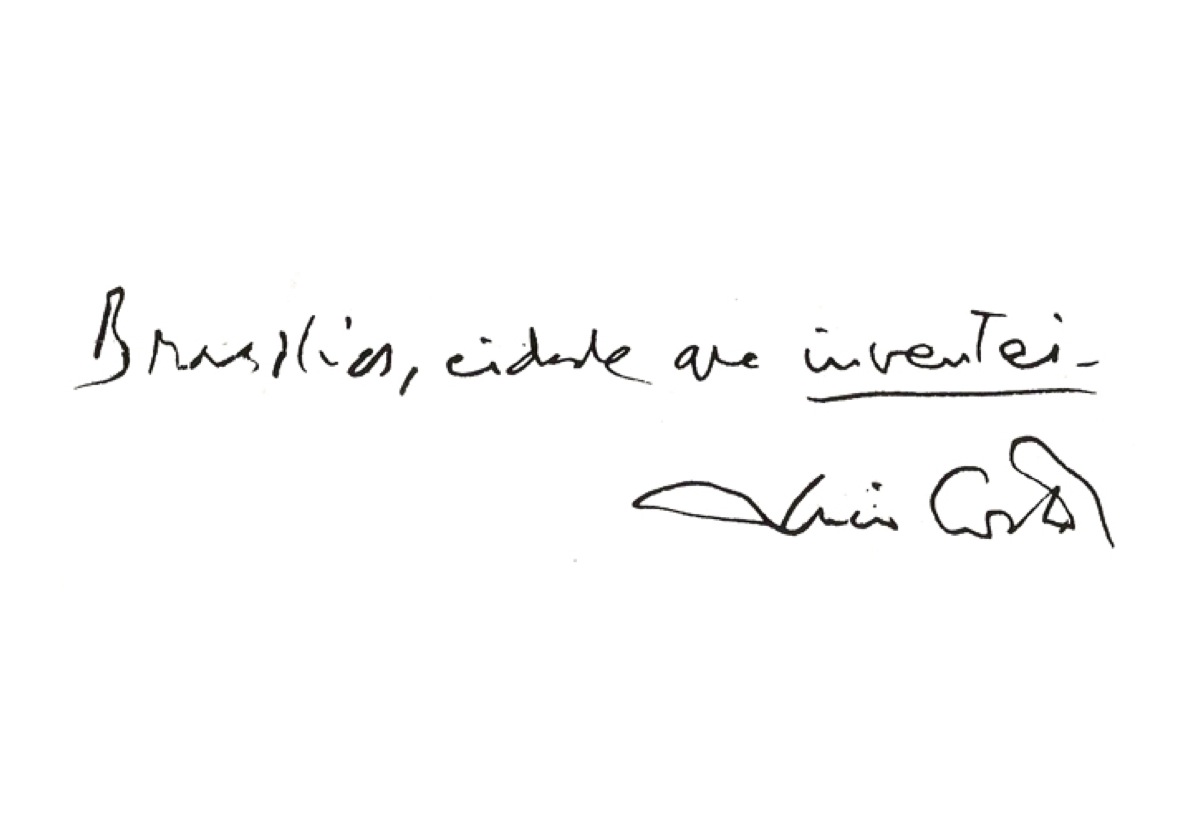 Brasilia, cidade que inventei_
Lucio Costa